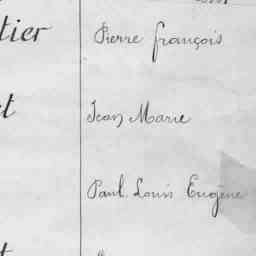 tier Pierre françois
t Jean Marie
Paul. Louis Eugène
t